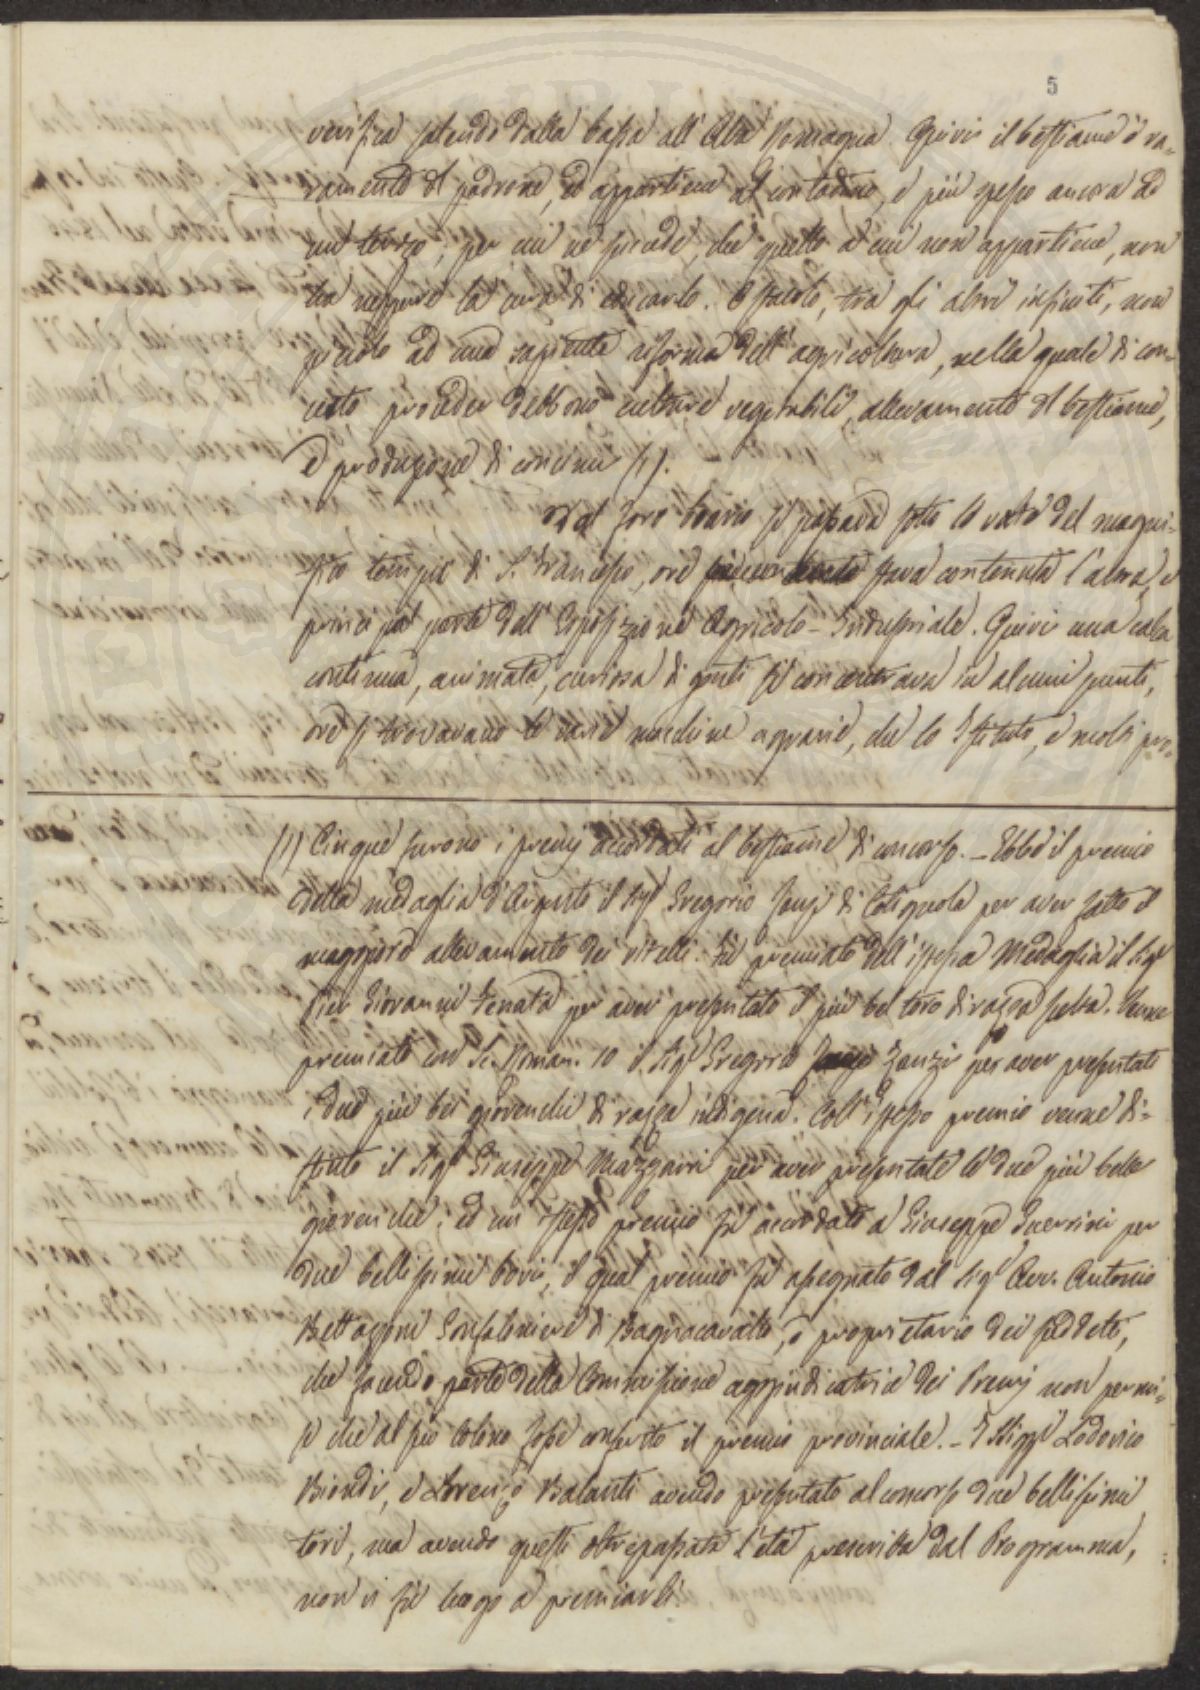 5
verifica salendo dalla bassa all'Alta Romagna. Quivi il bestiame è ra-
ramente del padrone, ed appartiene al contadino, e più spesso ancora ad
un terzo; per cui ne succede, che quello a cui non appartiene, non
ha neppure la cura di educarlo. Ostacolo, tra gli altri infiniti, non
piccolo ad una sapiente riforma dell'agricoltura, nella quale di con-
certo proceder debbono culture vegetabili, allevamento del bestiame,
e produzione di concimi (1).
Dal foro boario si passava sotto le volte del magni-
fico tempio di S. Francesco, ove stava contenuta l'altra, e
principal parte dell'Esposizione Agricolo-Industriale. Quivi una calca
continua, animata, curiosa di genti si concentrava in alcuni punti,
ove si trovavano le varie macchine agrarie, che lo Istituto, e molti pro-
(1) Cinque furono i premj accordati al bestiame di concorso. – Ebbe il premio
della medaglia d'Augusto il Sigr Gregorio Zanzi di Cotignola per aver fatto il
maggiore allevamento dei vitelli. Fù premiato dell'istessa Medaglia il Sigr
Pier Giovanni Venata per aver presentato il più bel toro di razza scelta. Venne
premiato con Sc. Roman. 10 il Sigr Gregorio Zanzi per aver presentato
i due più bei giovenchi di razza indigena. Coll'istesso premio venne di-
stinto il Sigr Giuseppe Mazzarri per aver presentate le due più belle
giovenche; ed un istesso premio fù accordato a Giuseppe Guerrini per
due bellissimi bovi, il qual premio fù assegnato dal Sigr Avv. Antonio
Bettazzoni Gonfaloniere di Bagnacavallo, e proprietario dei suddetti,
che facendo parte della Commissione aggiudicatrice dei Premj non permi-
se che al suo colono fosse conferto il premio provinciale. – I Sigg.ri Lodovico
Biondi, e Lorenzo Balanti avendo presentato al concorso due bellissimi
tori, ma avendo questi oltrepassata l'età prescritta dal Programma,
non vi fù luogo a premiarli